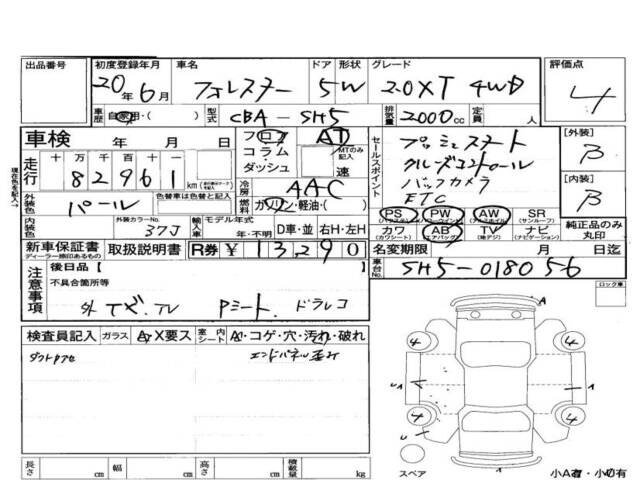 出品番号 初度登録年月 車名 ドア 形状 グレード 評価点
20年6月 フォレスター 5W 2.0XT 4WD 4
車歴 自家用・( ) 型式 CBA-SH5 排気量 2000cc 定員 人
車検 年 月 日 フロア AT セールスポイント プッシュスタート [外装] B
走行 十万 万 千 百 十 一 コラム MTのみ記入 クルーズコントロール
82961 km ダッシュ 速 バックカメラ [内装] B
現在色を記入→ 冷房 AAC ETC
外装色 パール 色替車は色替前の色 燃料 ガソリン・軽油・( ) PS PW AW SR 純正品のみ丸印
(パワーウインド) (アルミホイル) (サンルーフ)
内装色 外装カラーNo. 37J 輸入車 モデル年式 年・不明 D車・並 右H・左H カワ AB TV ナビ
(カワシート) (エアバッグ) (地デジ) (ナビゲーション)
新車保証書 取扱説明書 R券 ¥13,290 名変期限 月 日迄
ディーラー捺印あるもの 車台No. SH5-018056
注意事項 後日品【 】 ロック車
不具合箇所等 A
外ナビ.TV Pミート. ドラレコ
検査員記入 ガラス A・X要ス 室内シート A・コゲ・穴・汚れ・破れ 4 4
ダフトヤケ エンドパネル歪み
U1 U1
4 4
U 1
長さ cm 幅 cm 高さ cm 積載量 kg スペア 小A有・小凹有